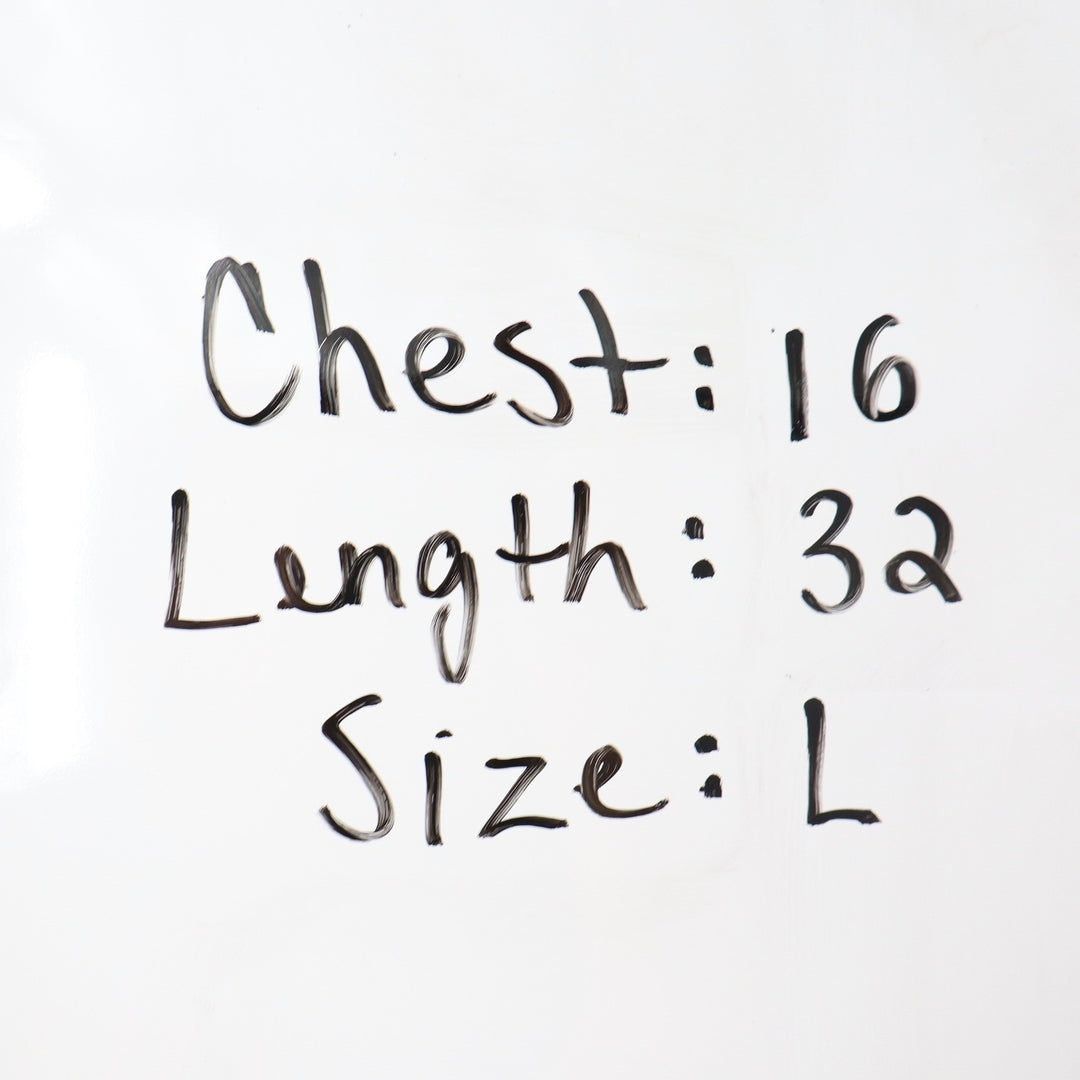 Chest: 16
Length: 32
Size: L